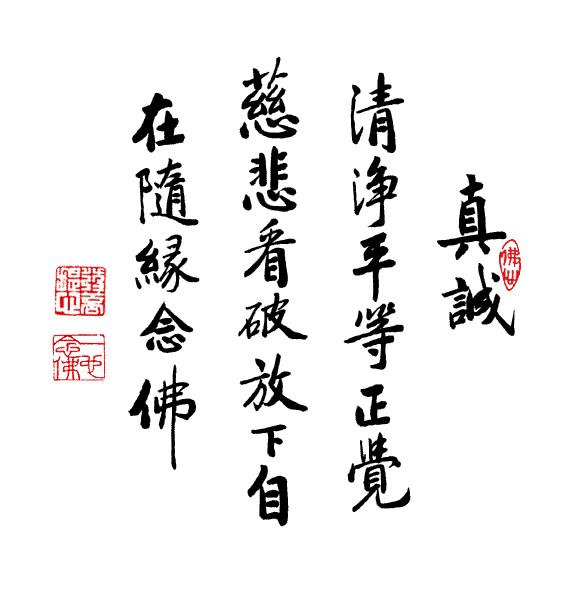 真誠
清淨平等正覺
慈悲看破放下自
在隨緣念佛